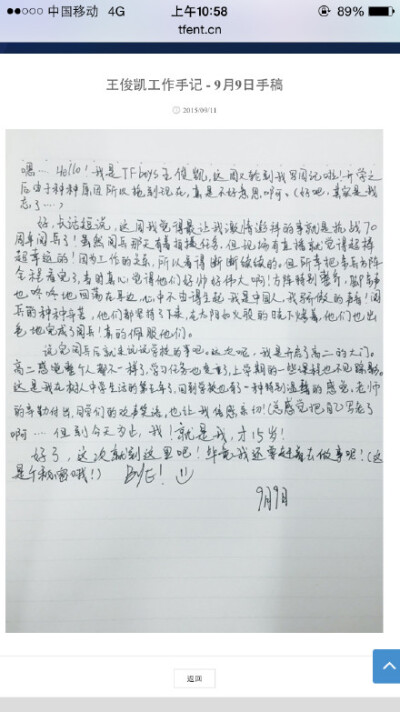 中国移动 4G 上午10:58 89%
tfent.cn
王俊凯工作手记 - 9月9日手稿
2015/09/11
嗯… Hello！我是TFboys王俊凯，这周又轮到我写周记啦！开学之
后由于种种原因所以拖到现在，真是不好意思啊。（好吧，其实是我
忘了…）
好，长话短说，这周我觉得最让我激情澎湃的事就是抗战70
周年阅兵了！虽然阅兵那天有着拍摄任务，但现场有直播就觉得超棒
超幸运的！因为工作的关系，所以看得断断续续的。但所幸把兵方阵
全程看完了，看时真心觉得他们好帅好伟大啊！方阵特别整齐，脚步声
也咚咚地回荡在耳边，心中不由得生起 我是中国人，我骄傲的声音！阅
兵的种种辛苦，他们都坚持了下来，在太阳如火般的下烤着，他们也出
色地完成了阅兵！真的佩服他们。
说完阅兵后就来说说学校的事吧。这次呢，我是高二的大门。
高二感觉整个人都不一样了，学习任务也更重了，上学期的一些课程也不见踪影。
这是我在树人中学生活的第五年了，回到学校也有一种特别温馨的感觉，老师
的辛勤付出，同学们的欢声笑语，也让我倍感亲切！（总感觉把自己写老了
啊… 但到今天为止，我！就是我，才15岁！
好了，这次就到这里吧！毕竟我还要赶着去做事呢！（这
是个秘密哦！） BYE！
9月9日
返回